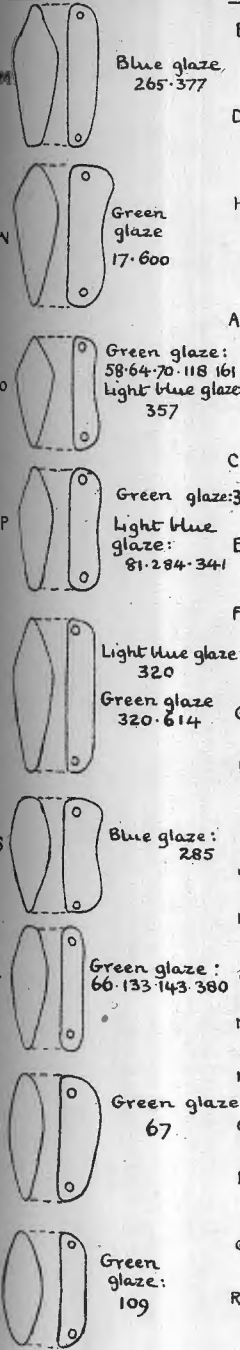 M
Blue glaze,
265·377
N
Green
glaze
17·600
o
Green glaze:
58·64·70·118 161
Light blue glaze
357
P
Green glaze:3
Light blue
glaze:
81·284·341
Light blue glaze
320
Green glaze
320·614
S
Blue glaze:
285
Green glaze:
66·133·143·380
Green glaze
67
Green
glaze:
109
D
H
A
C
E
F
R